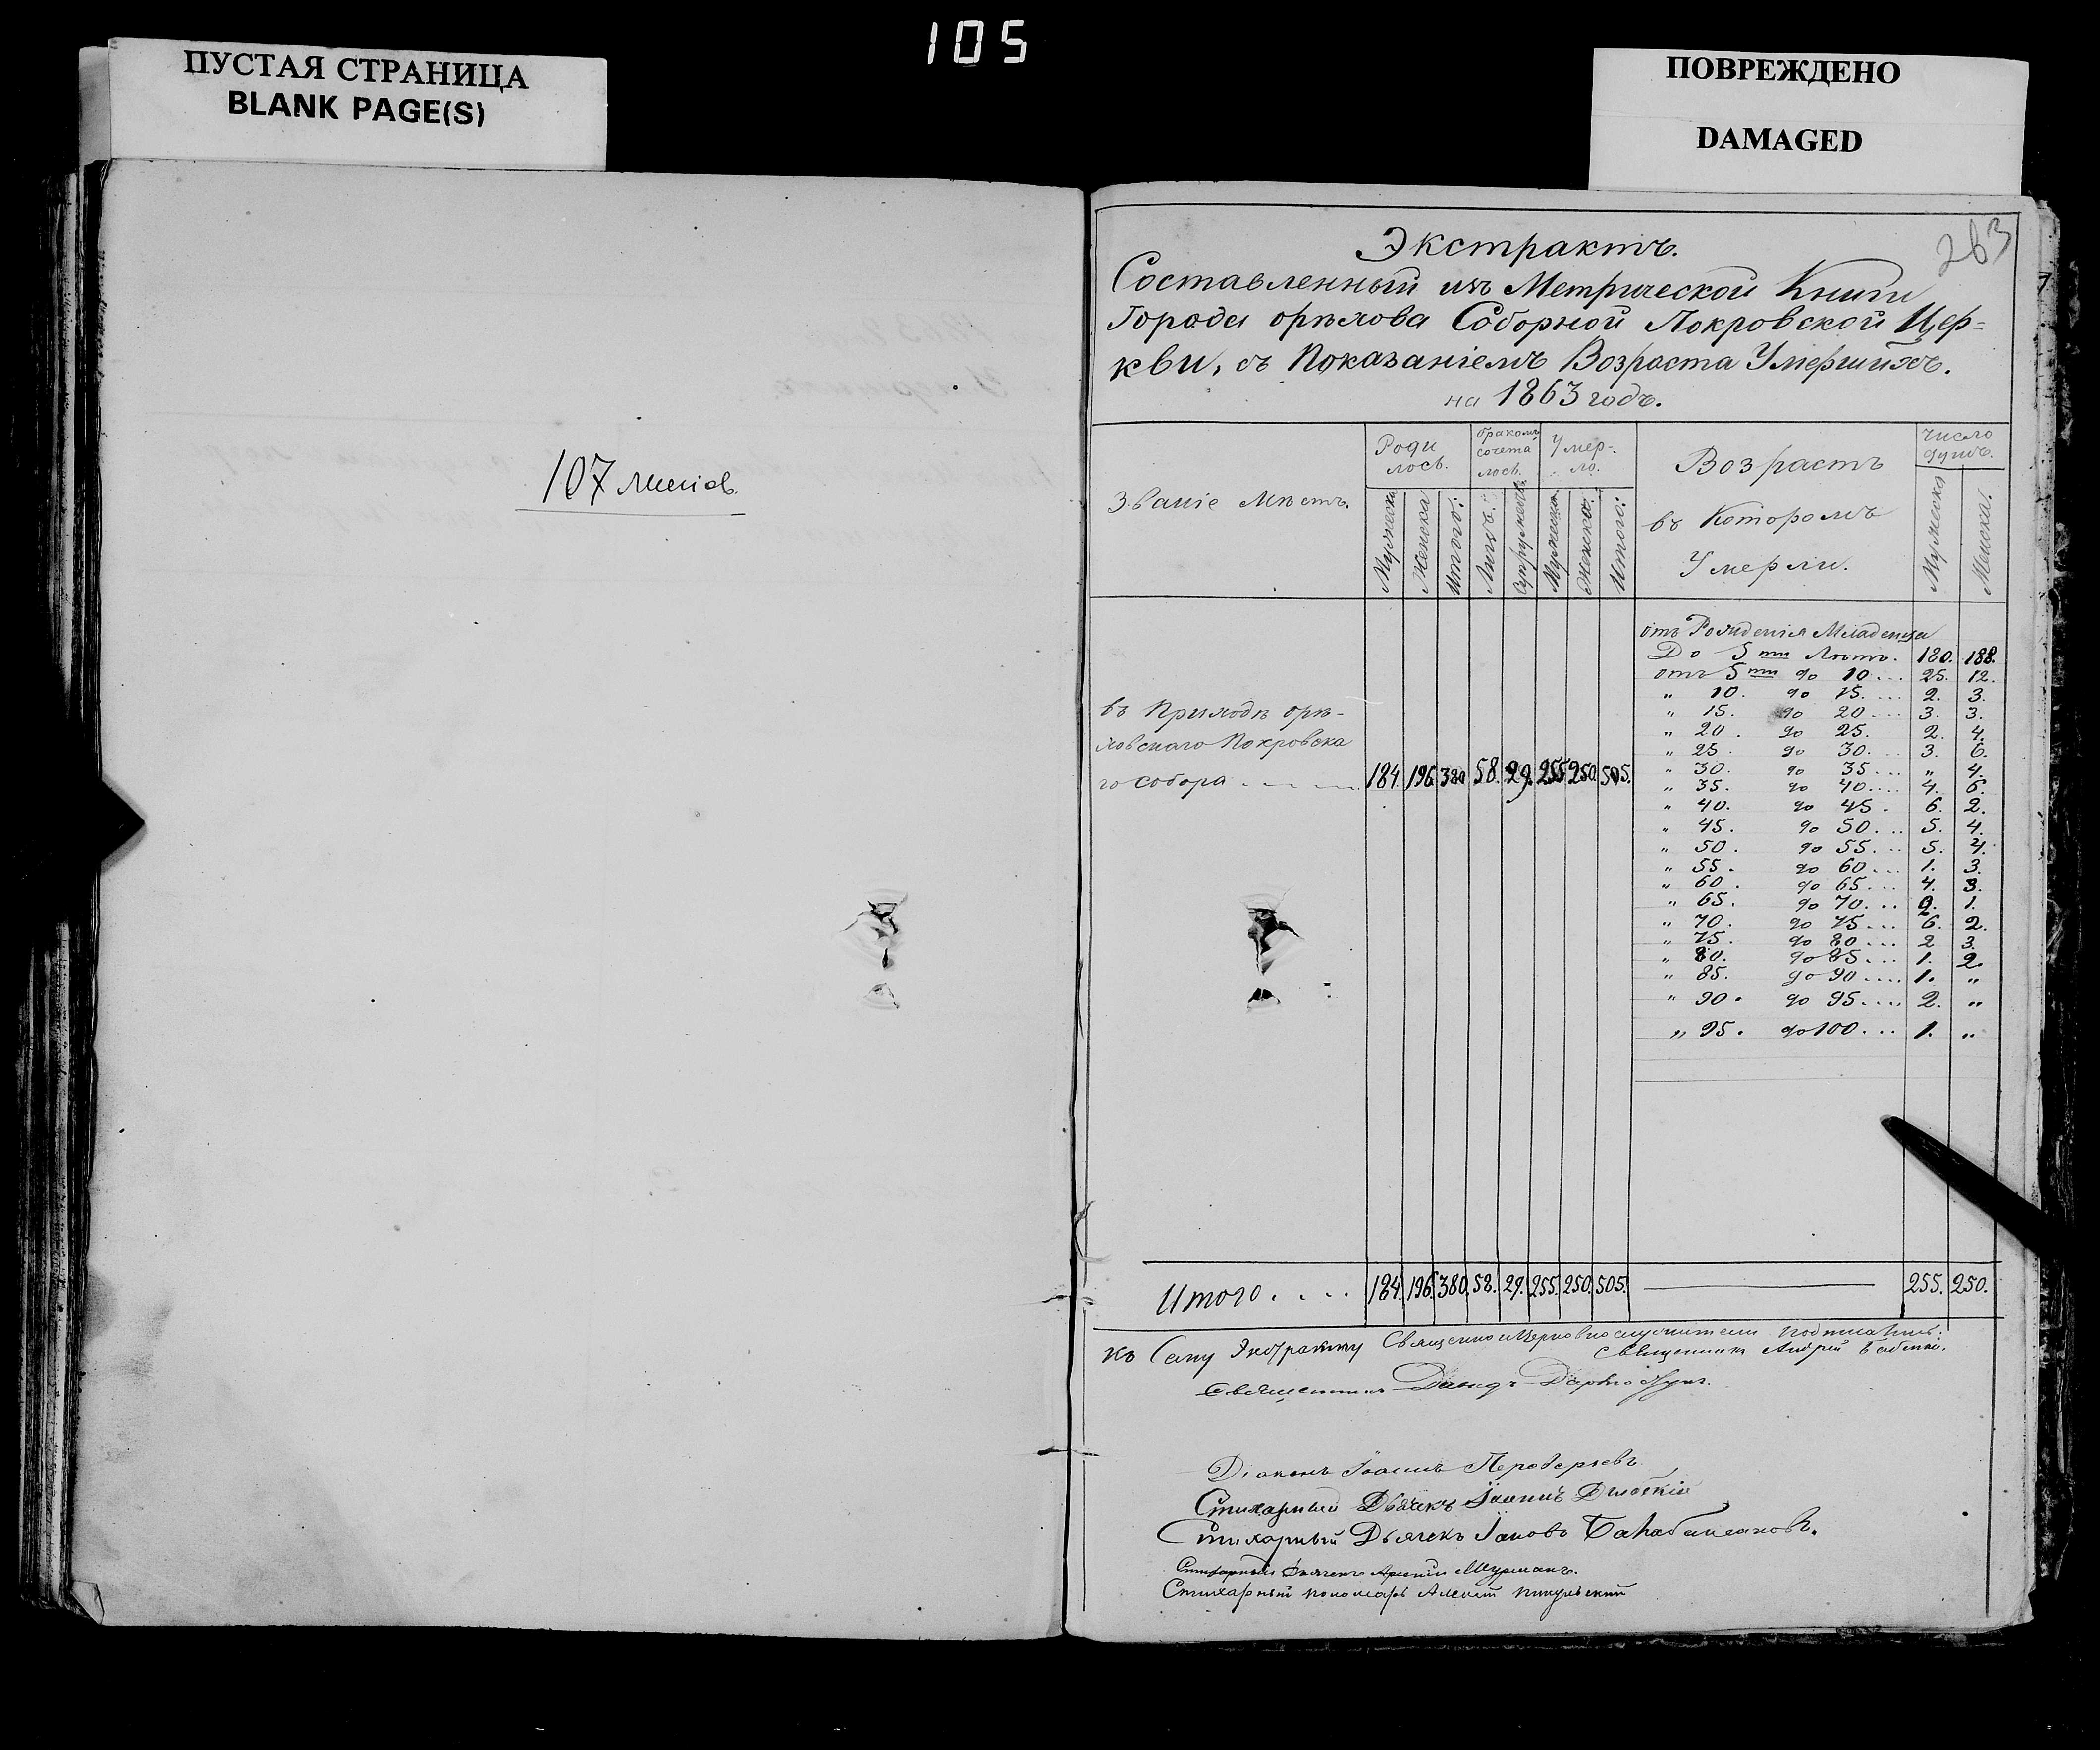 105
ПУСТАЯ СТРАНИЦА
BLANK PAGE(S)
ПОВРЕЖДЕНО
DAMAGED
107 листов.
263
Экстрактъ.
Составленный изъ Метрической Книги
Города орѣхова Соборной Покровской Цер=
кви, съ Показаніемъ Возраста Умершихъ.
на 1863 годъ.
Званіе Мѣстъ. Роди лось. бракомъ сочета лось. Умер-ло. Возрастъ въ Которомъ Умерли. число душъ.
Мужеска Женска Итого: Лицъ: Супружествъ. Мужеска. Женска. Итого: Мужеска Женска.
отъ Рожденія Младенца
До 5ти Лѣтъ. 180. 188.
отъ 5ти до 10.... 25. 12.
" 10. до 15.... 2. 3.
" 15. до 20.... 3. 3.
" 20. до 25. 2. 4.
" 25. до 30.... 3. 6.
" 30. до 35... " 4.
" 35. до 40.... 4. 6.
" 40. до 45. 6. 2.
" 45. до 50... 5. 4.
" 50. до 55... 5. 4.
" 55. до 60... 1. 3.
" 60. до 65... 4. 3.
" 65. до 70... 2. 1.
" 70. до 75... 6. 2.
" 75. до 80... 2 3.
" 80. до 85... 1. 2
" 85. до 90.... 1. "
" 90. до 95.... 2. "
" 95. до 100... 1. "
въ Приходѣ орѣ-
ховскаго Покровска
го собора . . . . 184. 196. 380 58. 29. 255 250. 505.
Итого . . . . 184. 196. 380. 58. 29. 255. 250. 505. 255. 250.
къ Сему Экстракту Священно и Церковнослужители подписались:
Священникъ Андрей
Священникъ Давидъ
Діаконъ Іоаннъ
Стихарный Дьячекъ Іоаннъ
Стихарный Дьячекъ Іаковъ
Стихарный Дьячекъ Арсеній
Стихарный пономарь Алексій